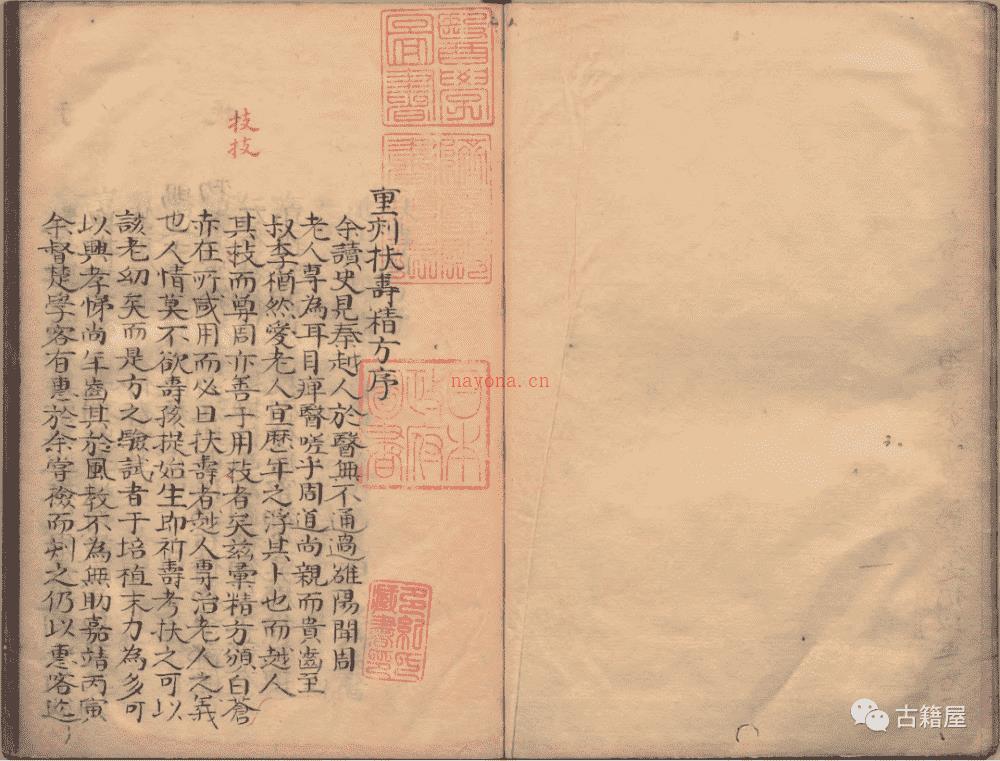 重刻扶壽精方序
余讀史見秦越人於醫無不通過雒陽聞周
老人專為耳目痺醫嗟乎周道尚親而貴齒至
叔季猶然愛老人宜歷年之浮其卜也而越人
其技而尊周亦善于用技者矣茲彙精方頒白蒼
赤在所咸用而必曰扶壽者越人專治老人之義
也人情莫不欲壽孩提始生即祈壽考扶之可以
該老幼矣而是方之驗試者于培植末力為多可
以興孝悌尚年齒其於風教不為無助嘉靖丙寅
余督楚學客有惠於余字檢而刻之仍以惠客迄
技
技
醫學圖書
日本政府圖書
多紀氏藏書印
nayona.cn
古籍屋